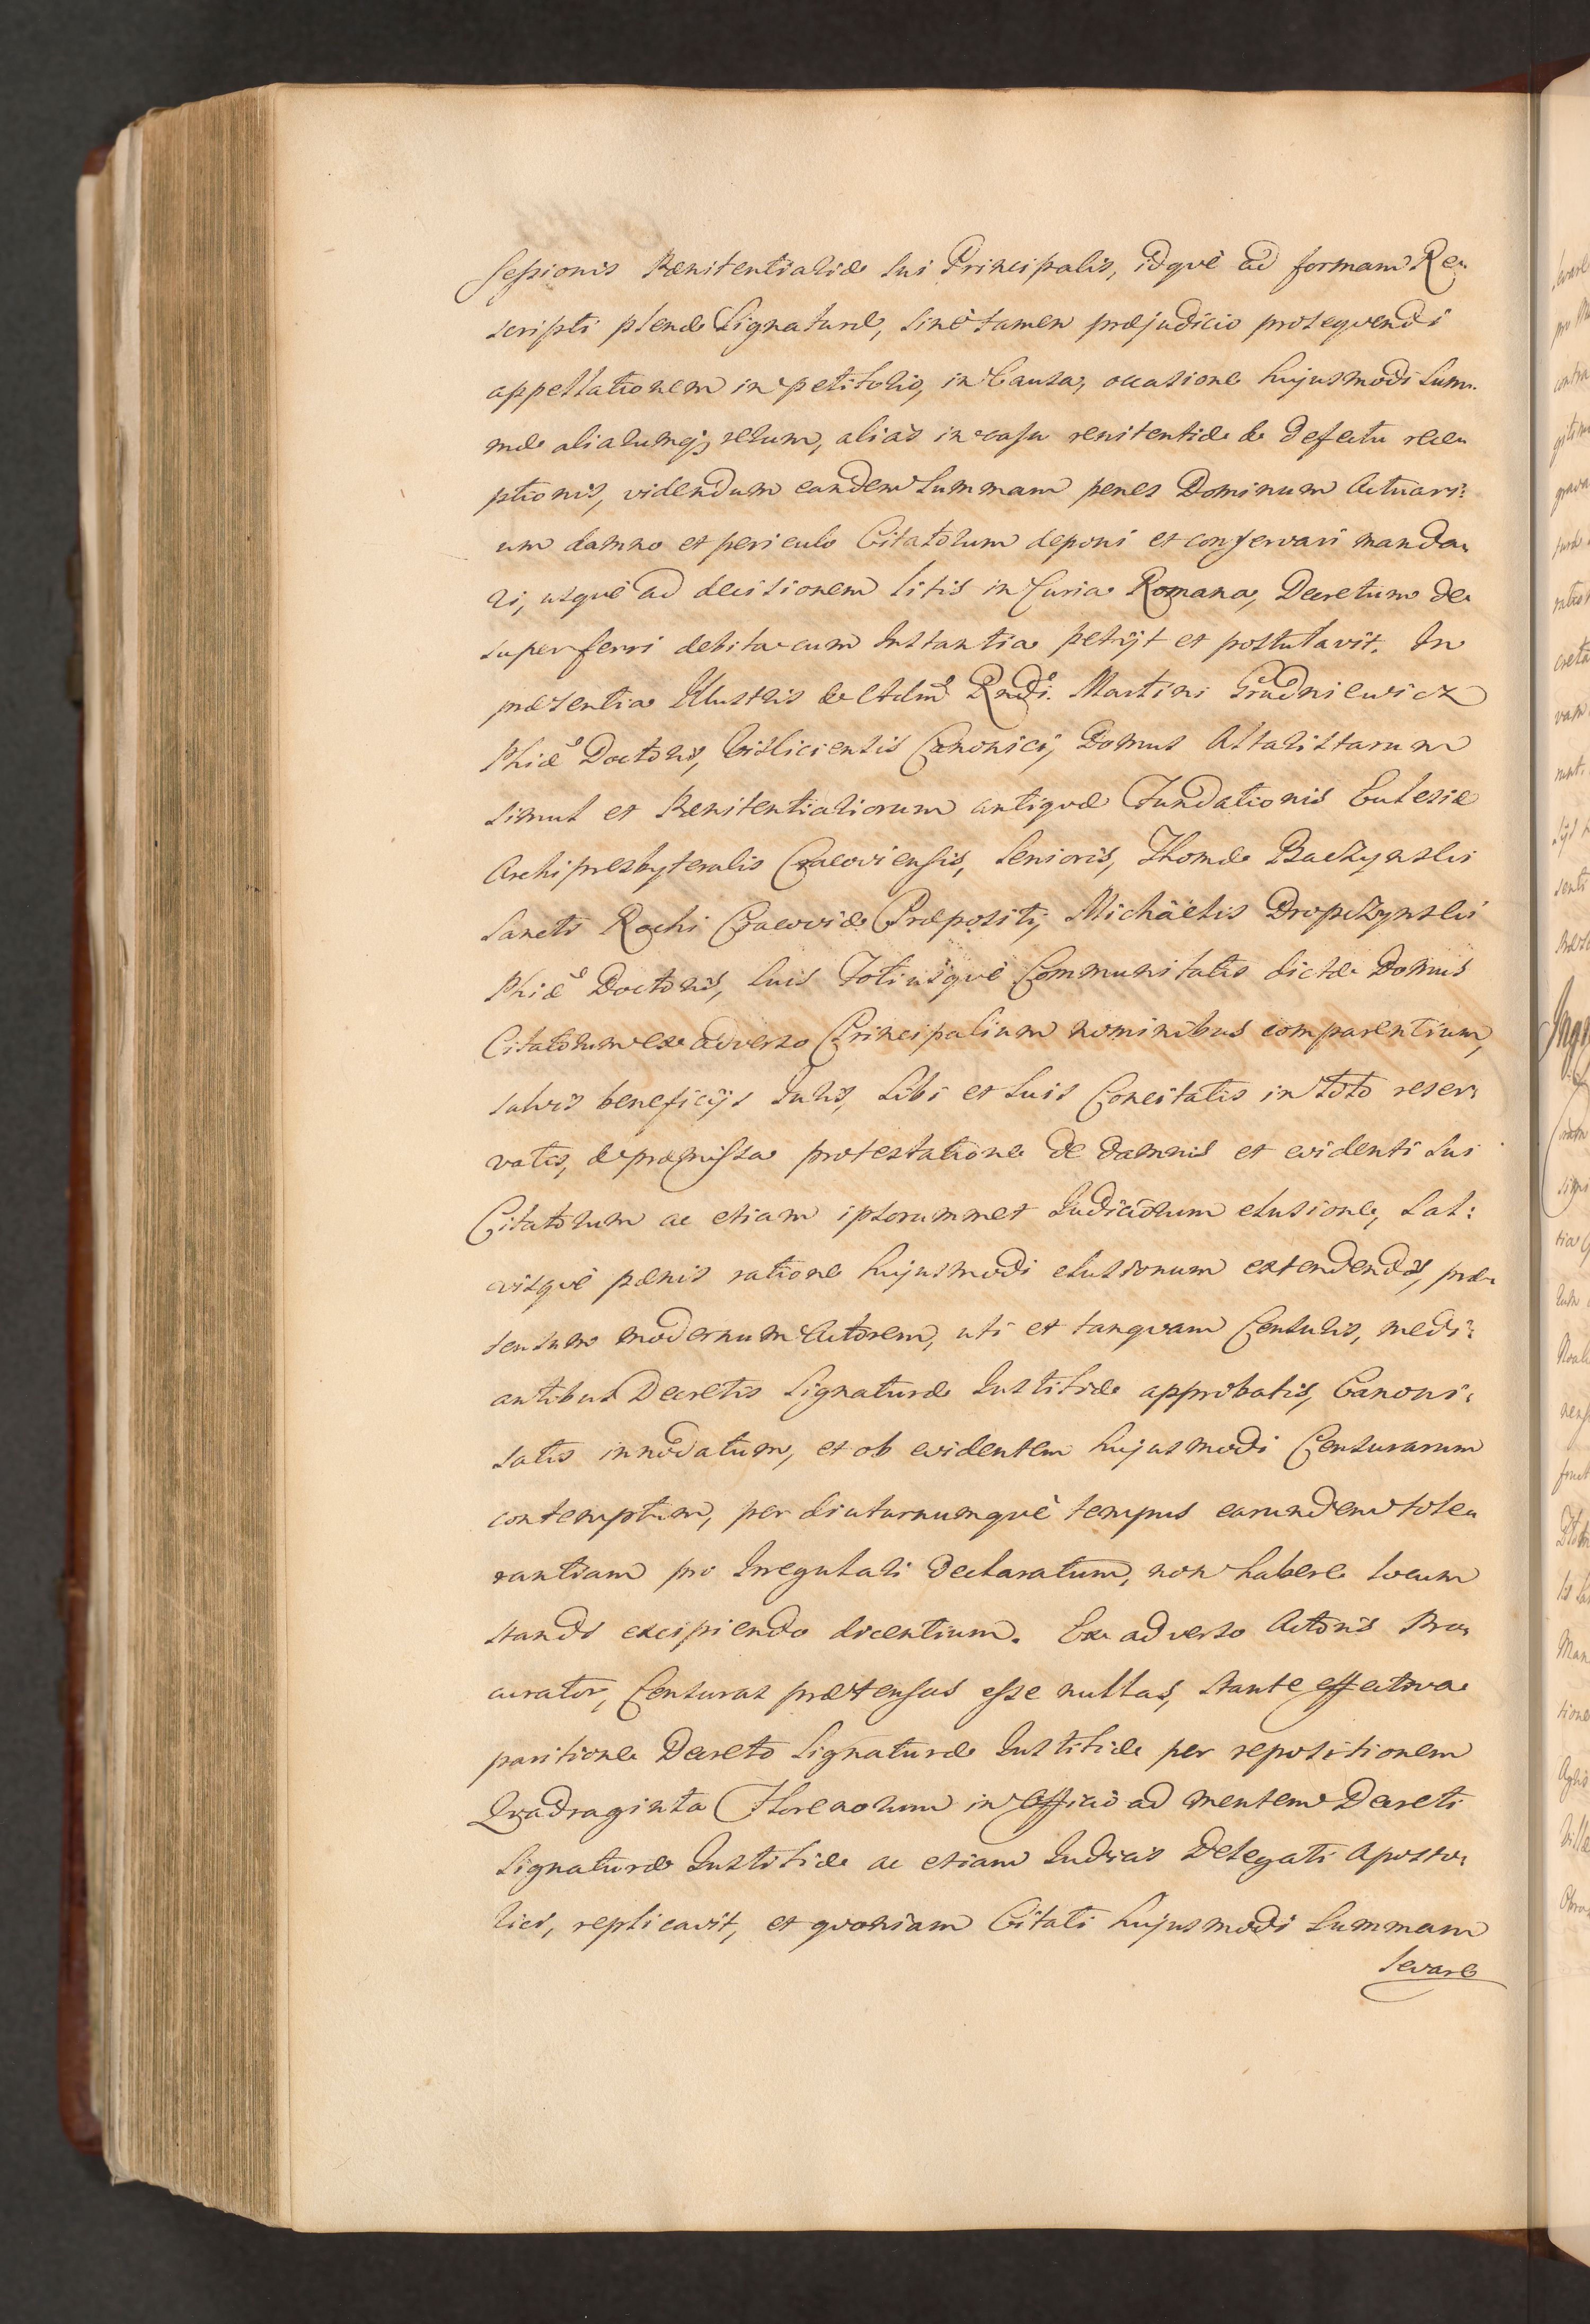 sessionis Pænitentialiæ sui Principalis, idquè ad formam Re-
scripti plenæ Signaturæ, sinè tamen præjudicio prosequendi
appellationem in petitorio, in Causa, occasione hujusmodi Sum-
mæ aliarumq; rerum, alias in casu renitentiæ & defectu rece-
ptionis, videndum eandem Summam penes Dominum Actuari:
um damno et periculo Citatorum deponi et conservari manda-
ri, usquè ad decisionem litis in Curia Romana, Decretum de-
super ferri debita cum Instantia petijt et postulavit. In
præsentia Illustris & Adm Rndi. Martini Grudniewicz
Phiæ Doctoris, Visliciensis Canonici, Domus Altaristarum
simul et Pænitentialiorum antiquæ Fundationis Ecclesiæ
Archipresbyteralis Cracoviensis, Senioris, Thomæ Baczynski
Sancti Rochi Cracoviæ Præpositi, Michäelis Dropczynski
Phiæ Doctoris, suis Totiusquè Communitatis dictæ Domus
Citatorum ex adverso Principalium nominibus comparentium,
salvis beneficijs Juris, sibi et suis Concitatis in toto reser-
vatis, & præmissa protestatione de damnis et evidenti sui
Citatorum ac etiam ipsorummet Judiciorum elusione, sal:
visquè pænis ratione hujusmodi elusionum extendendis, præ-
sensum modernum Actorem, uti et tanquam Censuris, medi:
antibus Decretis Signaturæ Justitiæ approbatis, Canoni-
satis innodatum, et ob evidentem hujusmodi Censurarum
contemptum, per diuturnumquè tempus earundem tole-
rantiam pro Irregulari declaratum, non habere locum
standi excipiendo dicentium. Ex adverso Actoris Pro-
curator, Censuras prætensas esse nullas, stante effectiva
paritione Decreto Signaturæ Justitiæ per repositionem
Quadraginta Florenorum in Officio ad mentem Decreti
Signaturæ Justitiæ ac etiam Judicis Delegati Aposto-
lici, replicavit, et quoniam Citati hujusmodi Summam
levare